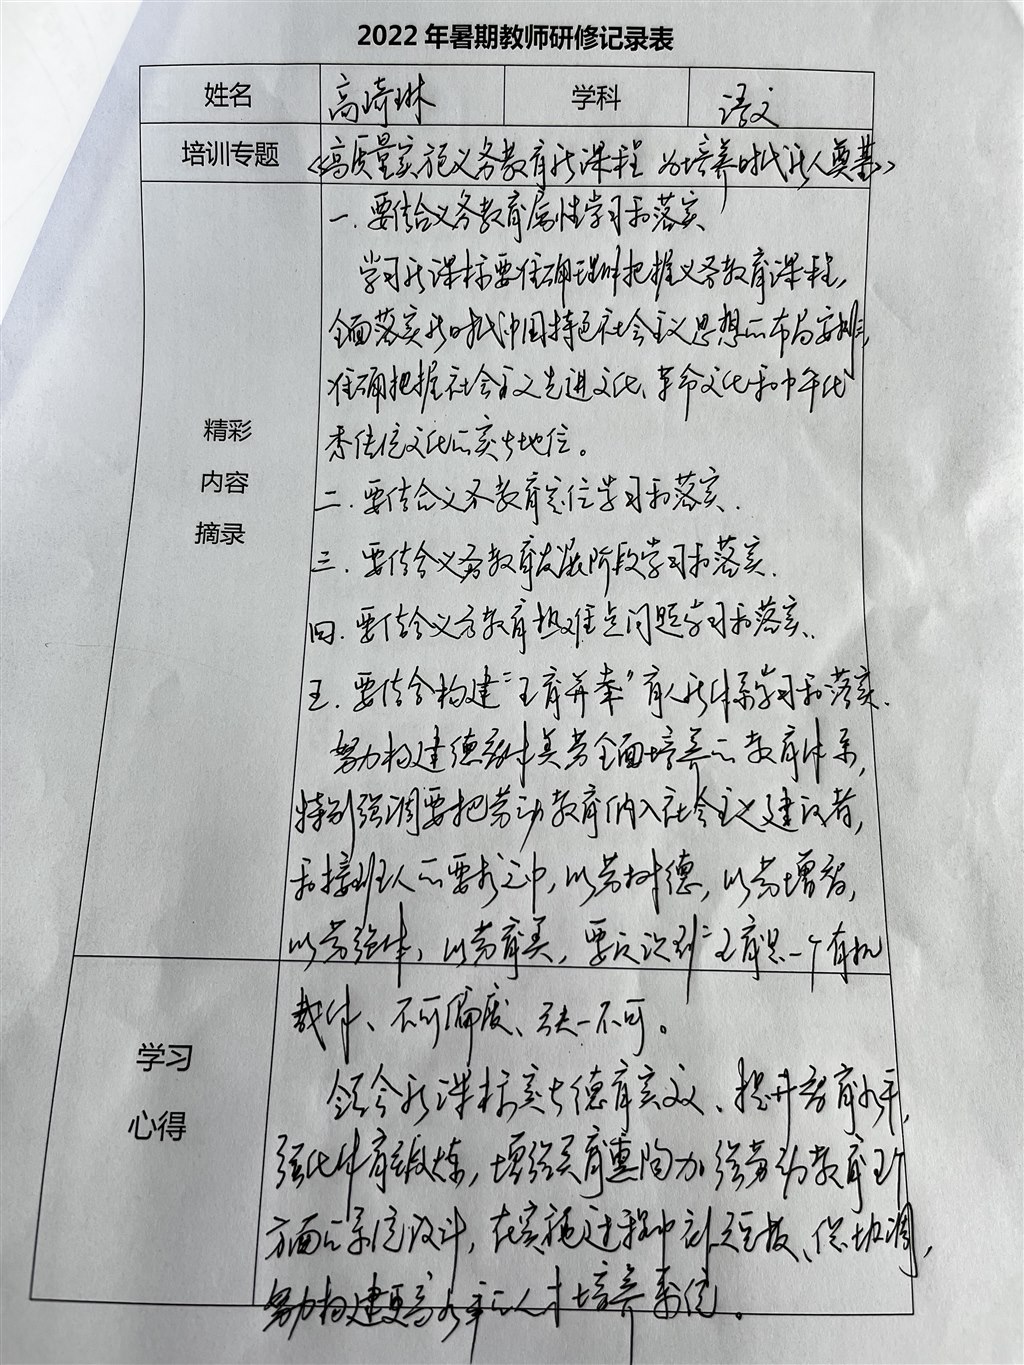 2022 年暑期教师研修记录表
姓名 高崎琳 学科 语文
培训专题 《高质量实施义务教育新课程 为培养时代新人奠基》
精彩
内容
摘录
一.要结合义务教育属性学习和落实、
学习新课标要准确理解把握义务教育课程,
全面落实新时代中国特色社会主义思想的布局安排,
准确把握社会主义先进文化、革命文化和中华优
秀传统文化的突出地位。
二.要结合义务教育定位学习和落实.
三.要结合义务教育发展阶段学习和落实.
四.要结合义务教育热难点问题学习和落实.
五.要结合构建“五育并举”育人新体系学习和落实.
努力构建德智体美劳全面培养的教育体系,
特别强调要把劳动教育纳入社会主义建设者,
和接班人的要求之中,以劳树德,以劳增智,
以劳强体,以劳育美,要认识到“五育是一个有机
整体、不可偏废、缺一不可。
学习
心得
领会新课标突出德育实效、提升智育水平,
强化体育锻炼,增强美育熏陶加强劳动教育五个
方面的系统设计,在实施过程中补短板、促协调,
努力构建更高水平的人才培养系统。